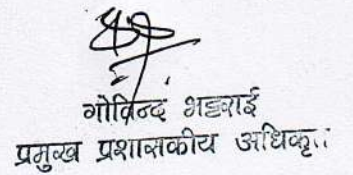 गोविन्द भट्टराई
प्रमुख प्रशासकीय अधिकृत